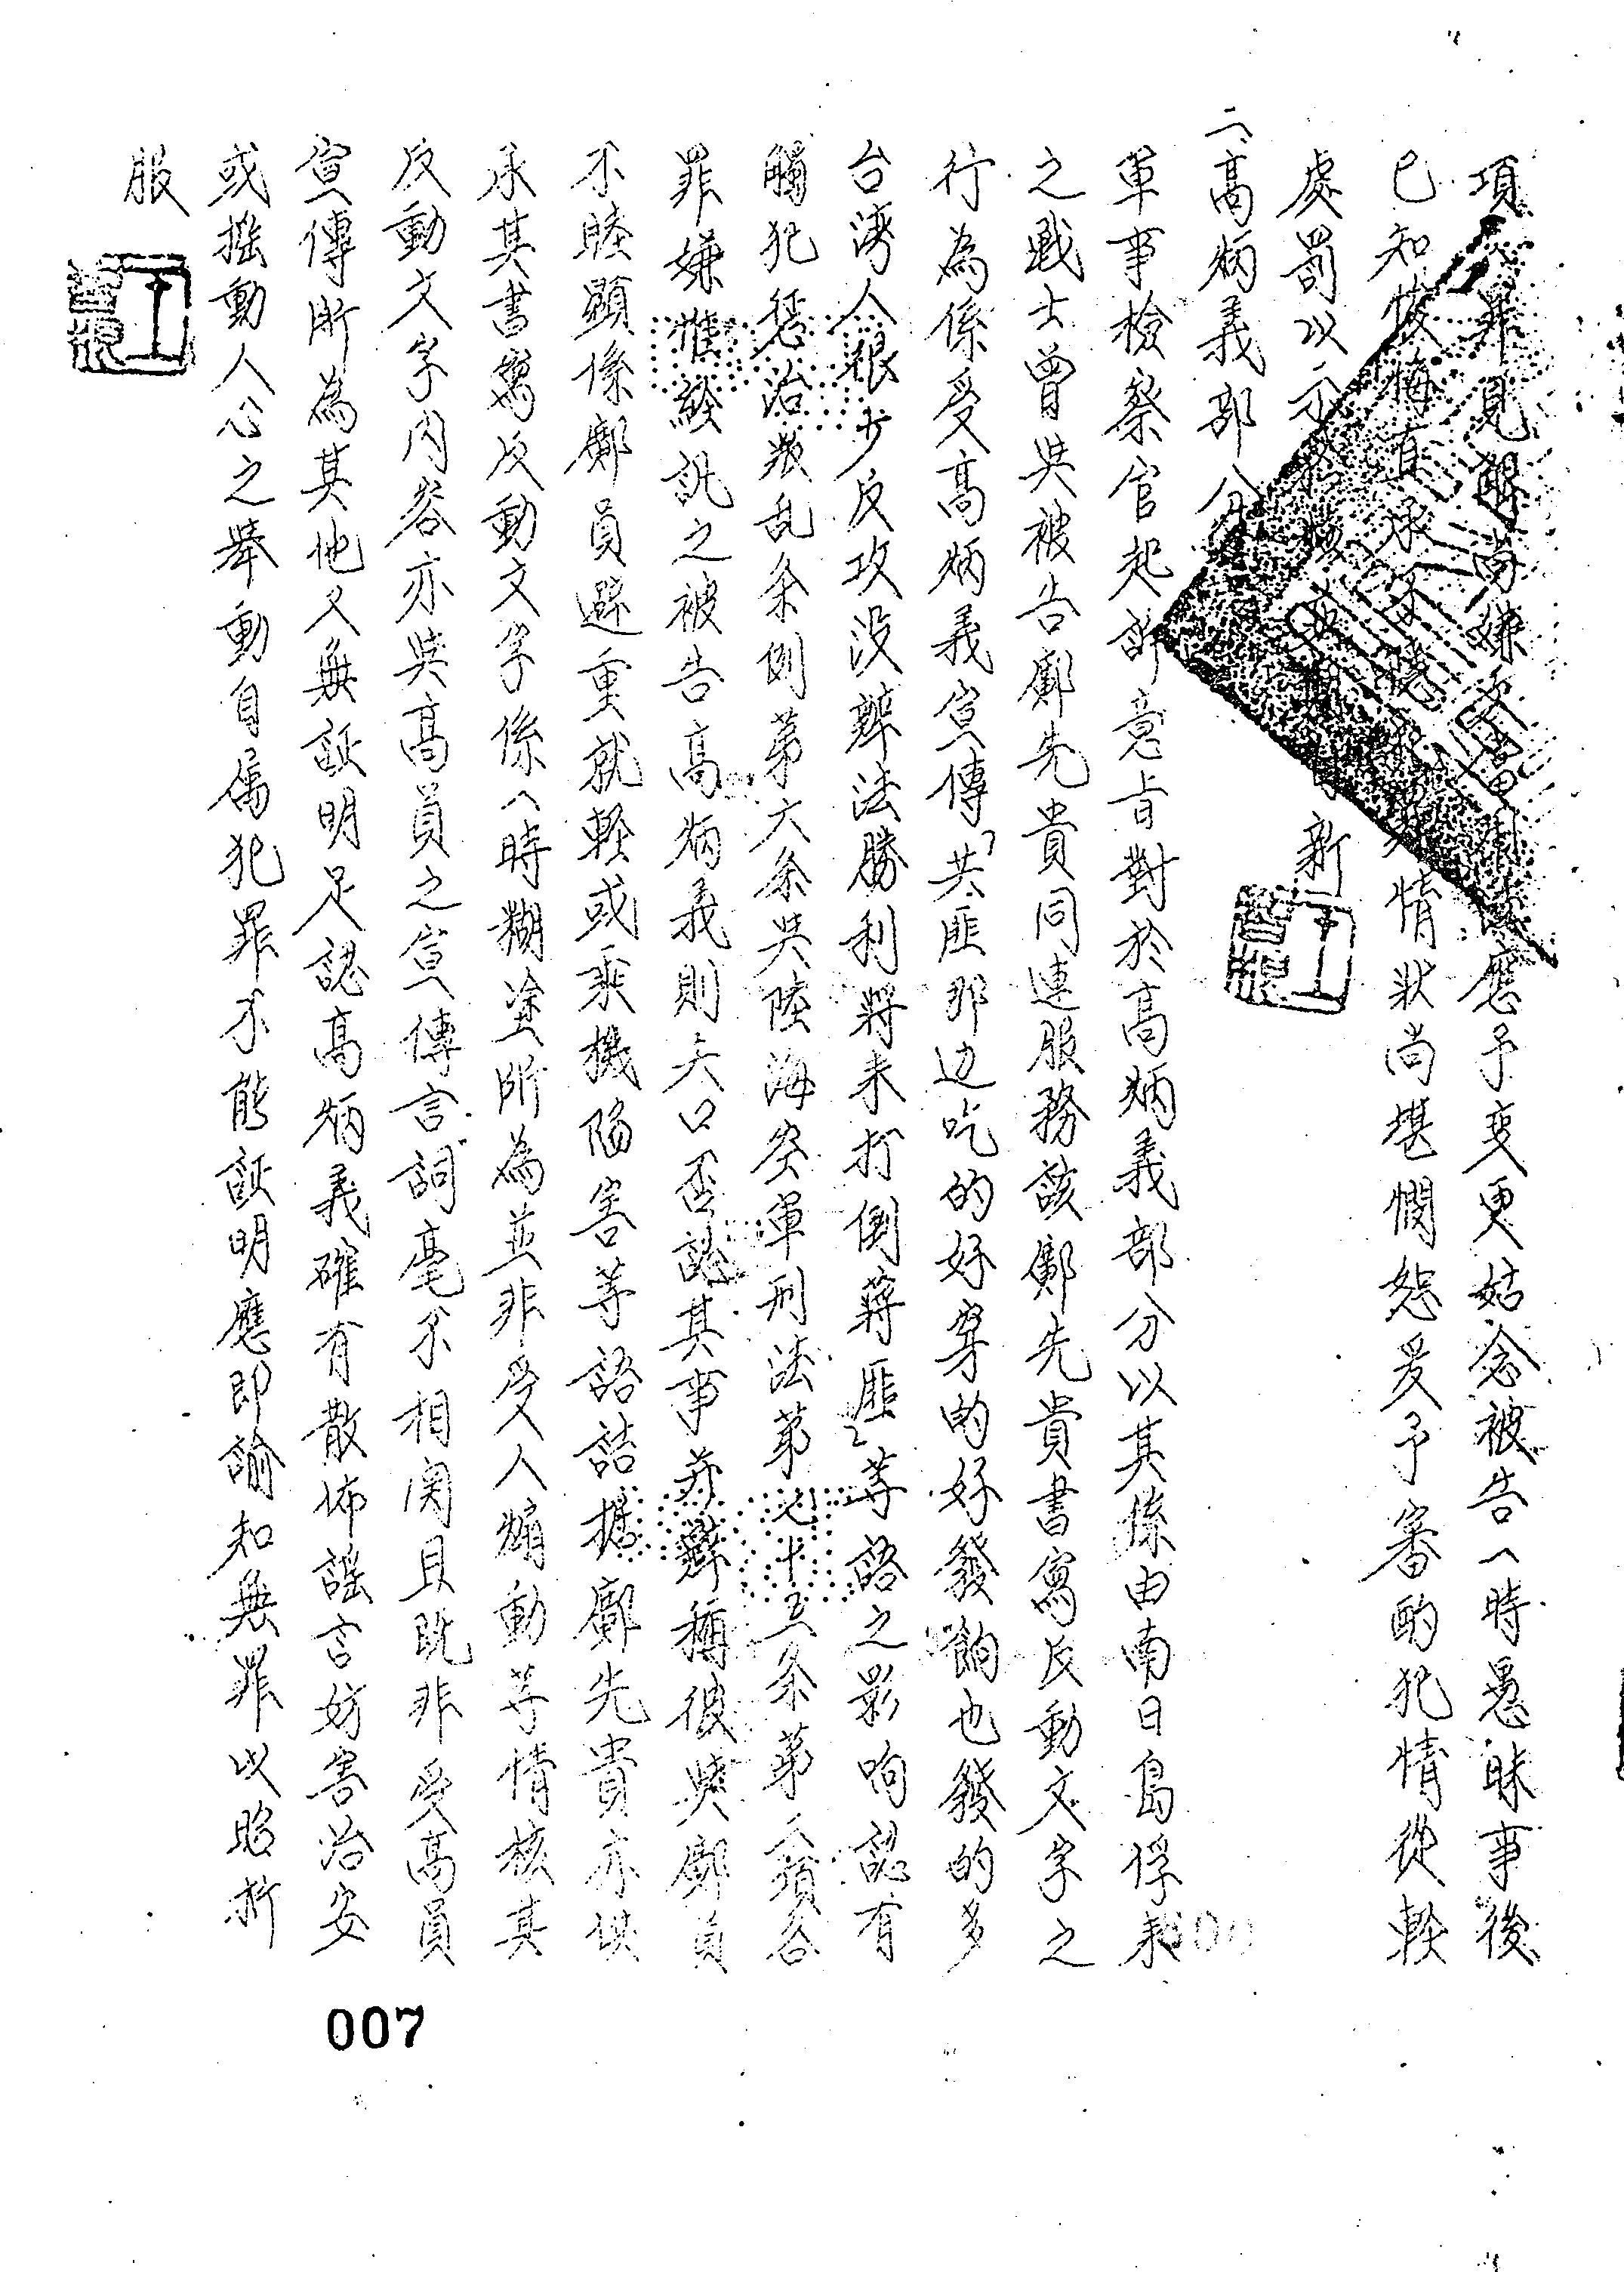 項罪見解尚嫌欠當引法應予变更姑念被告一時愚昧事後
已知悛悔直承不諱情狀尚堪憫恕爰予審酌犯情從輕
處罰以示新
二、高炳義部分
軍事檢察官起訴意旨對於高炳義部分以其係由南日島俘来
之戰士曾與被告鄺先貴同連服務該鄺先貴書寫反動文字之
行為係受高炳義宣傳「共匪那边吃的好穿的好發餉也發的多
台湾人很少反攻没辦法勝利將来打倒蔣匪」等語之影响認有
觸犯惩治叛乱条例第六条與陸海空軍刑法第七十五条第二項各
罪嫌惟經訊之被告高炳義則矢口否認其事并辯稱彼與鄺員
不睦顯係鄺員避重就輕或乘機陷害等語詰據鄺先貴亦供
承其書寫反動文字係一時糊塗所為並非受人煽動等情核其
反動文字內容亦與高員之宣傳言詞毫不相関且既非受高員
宣傳所為其他又無証明足認高炳義確有散佈謠言妨害治安
或摇動人心之舉動自属犯罪不能証明應即諭知無罪以昭折
服
007